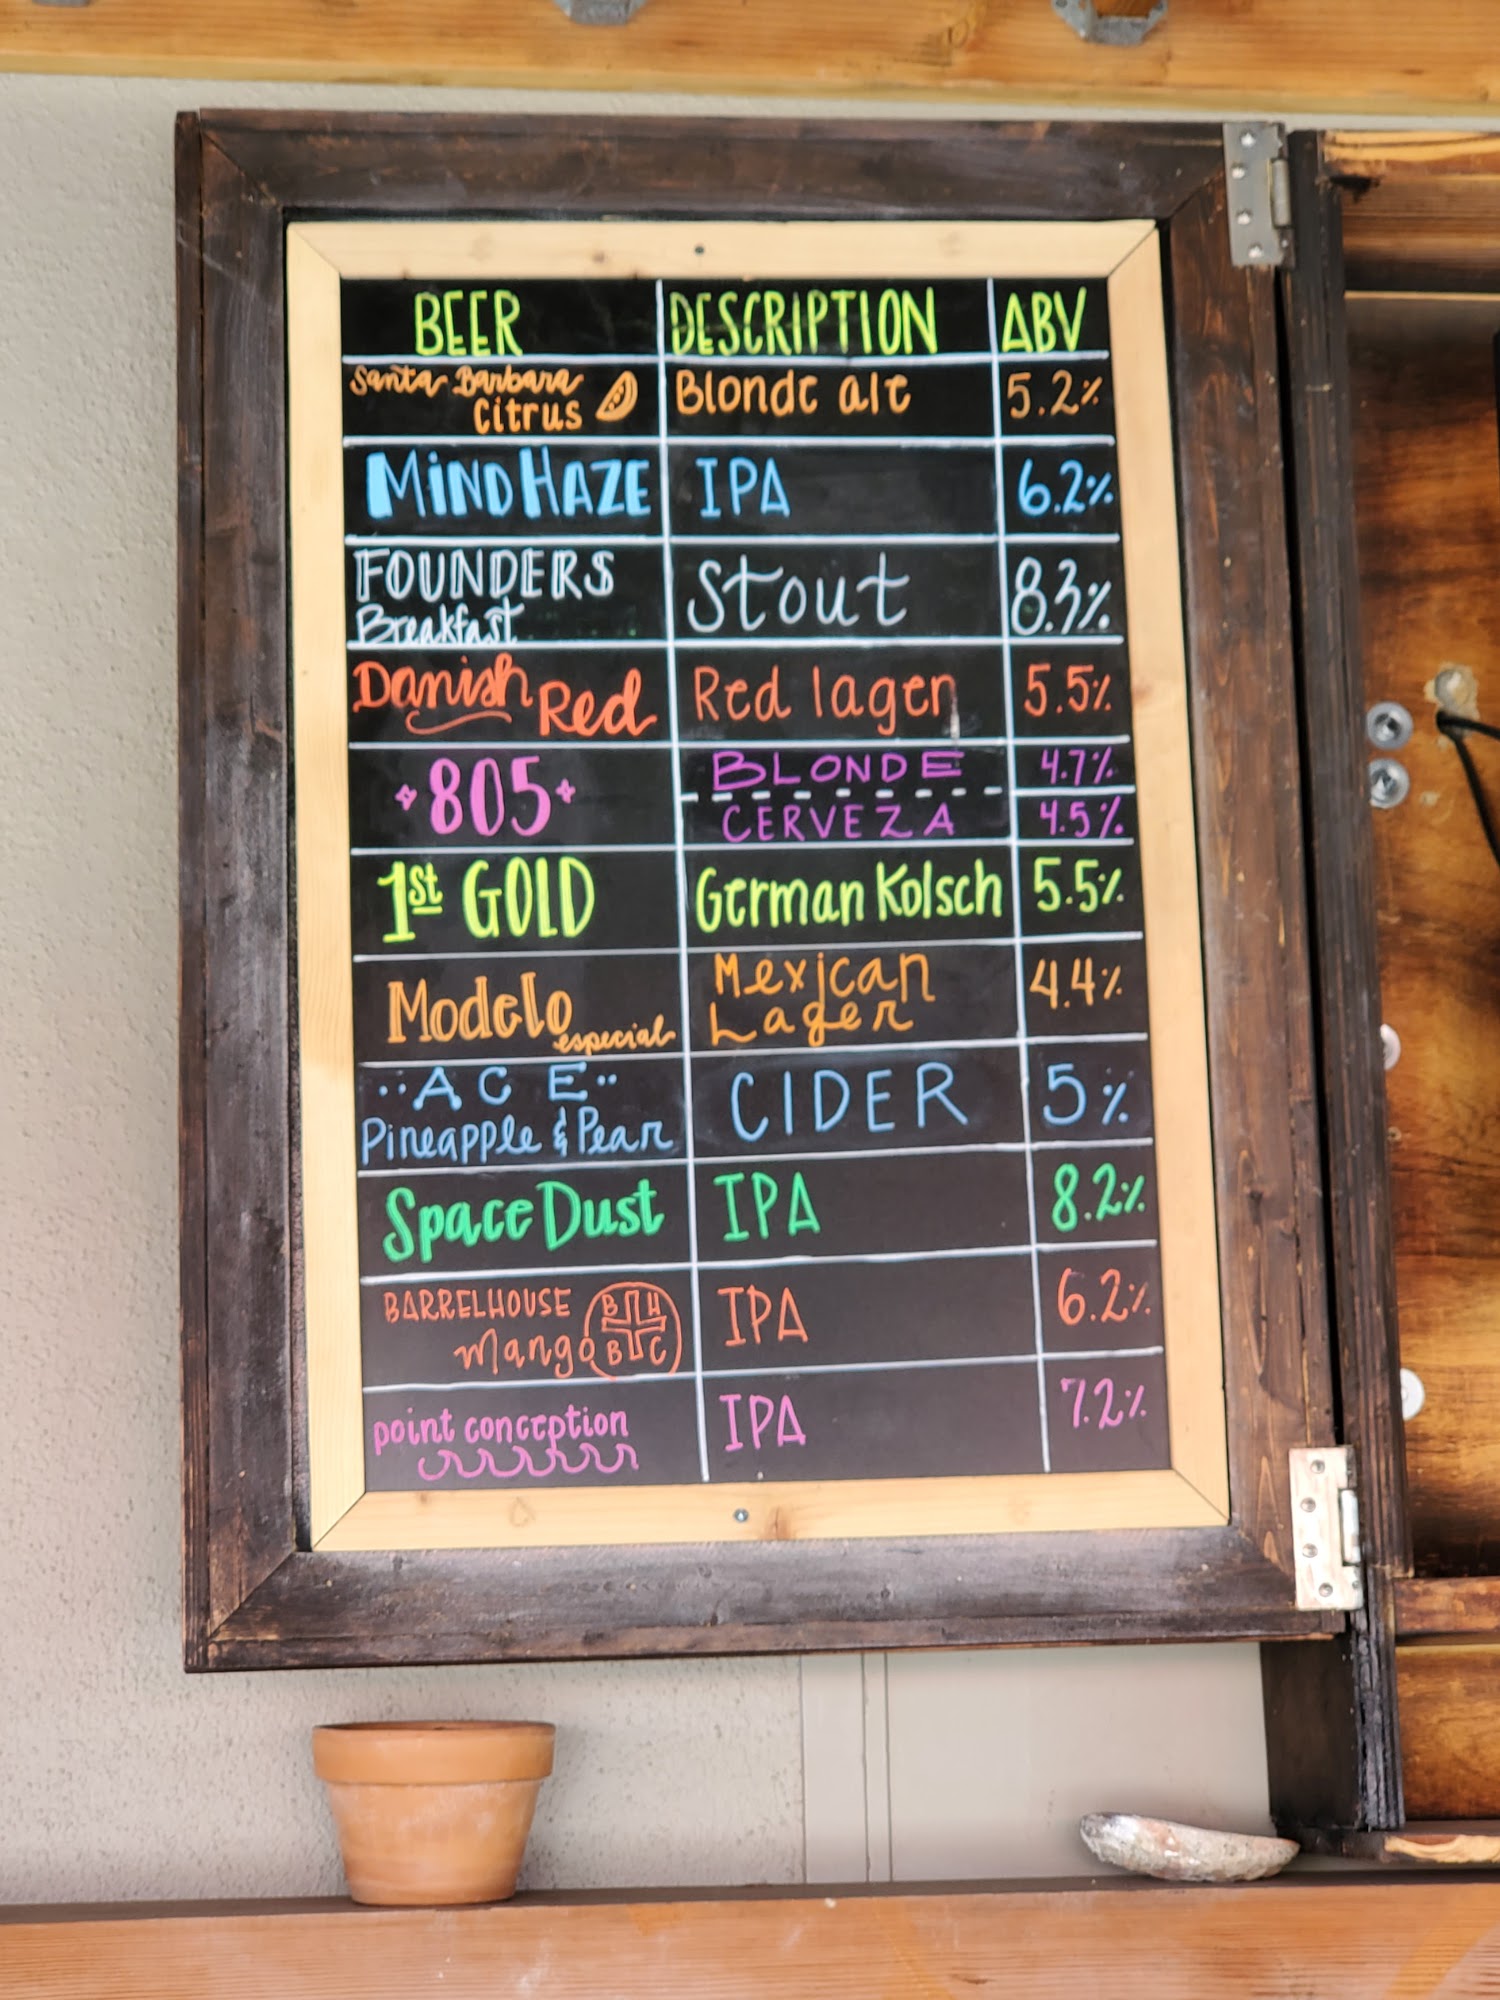 BEER DESCRIPTION ABV
Santa Barbara
Citrus Blonde ale 5.2%
MIND HAZE IPA 6.2%
FOUNDERS
Breakfast Stout 8.3%
Danish Red Red lager 5.5%
805 BLONDE 4.7%
CERVEZA 4.5%
1st GOLD German Kolsch 5.5%
Modelo especial Mexican
Lager 4.4%
ACE
Pineapple & Pear CIDER 5%
Space Dust IPA 8.2%
BARRELHOUSE
Mango IPA 6.2%
B H
B C
point conception IPA 7.2%